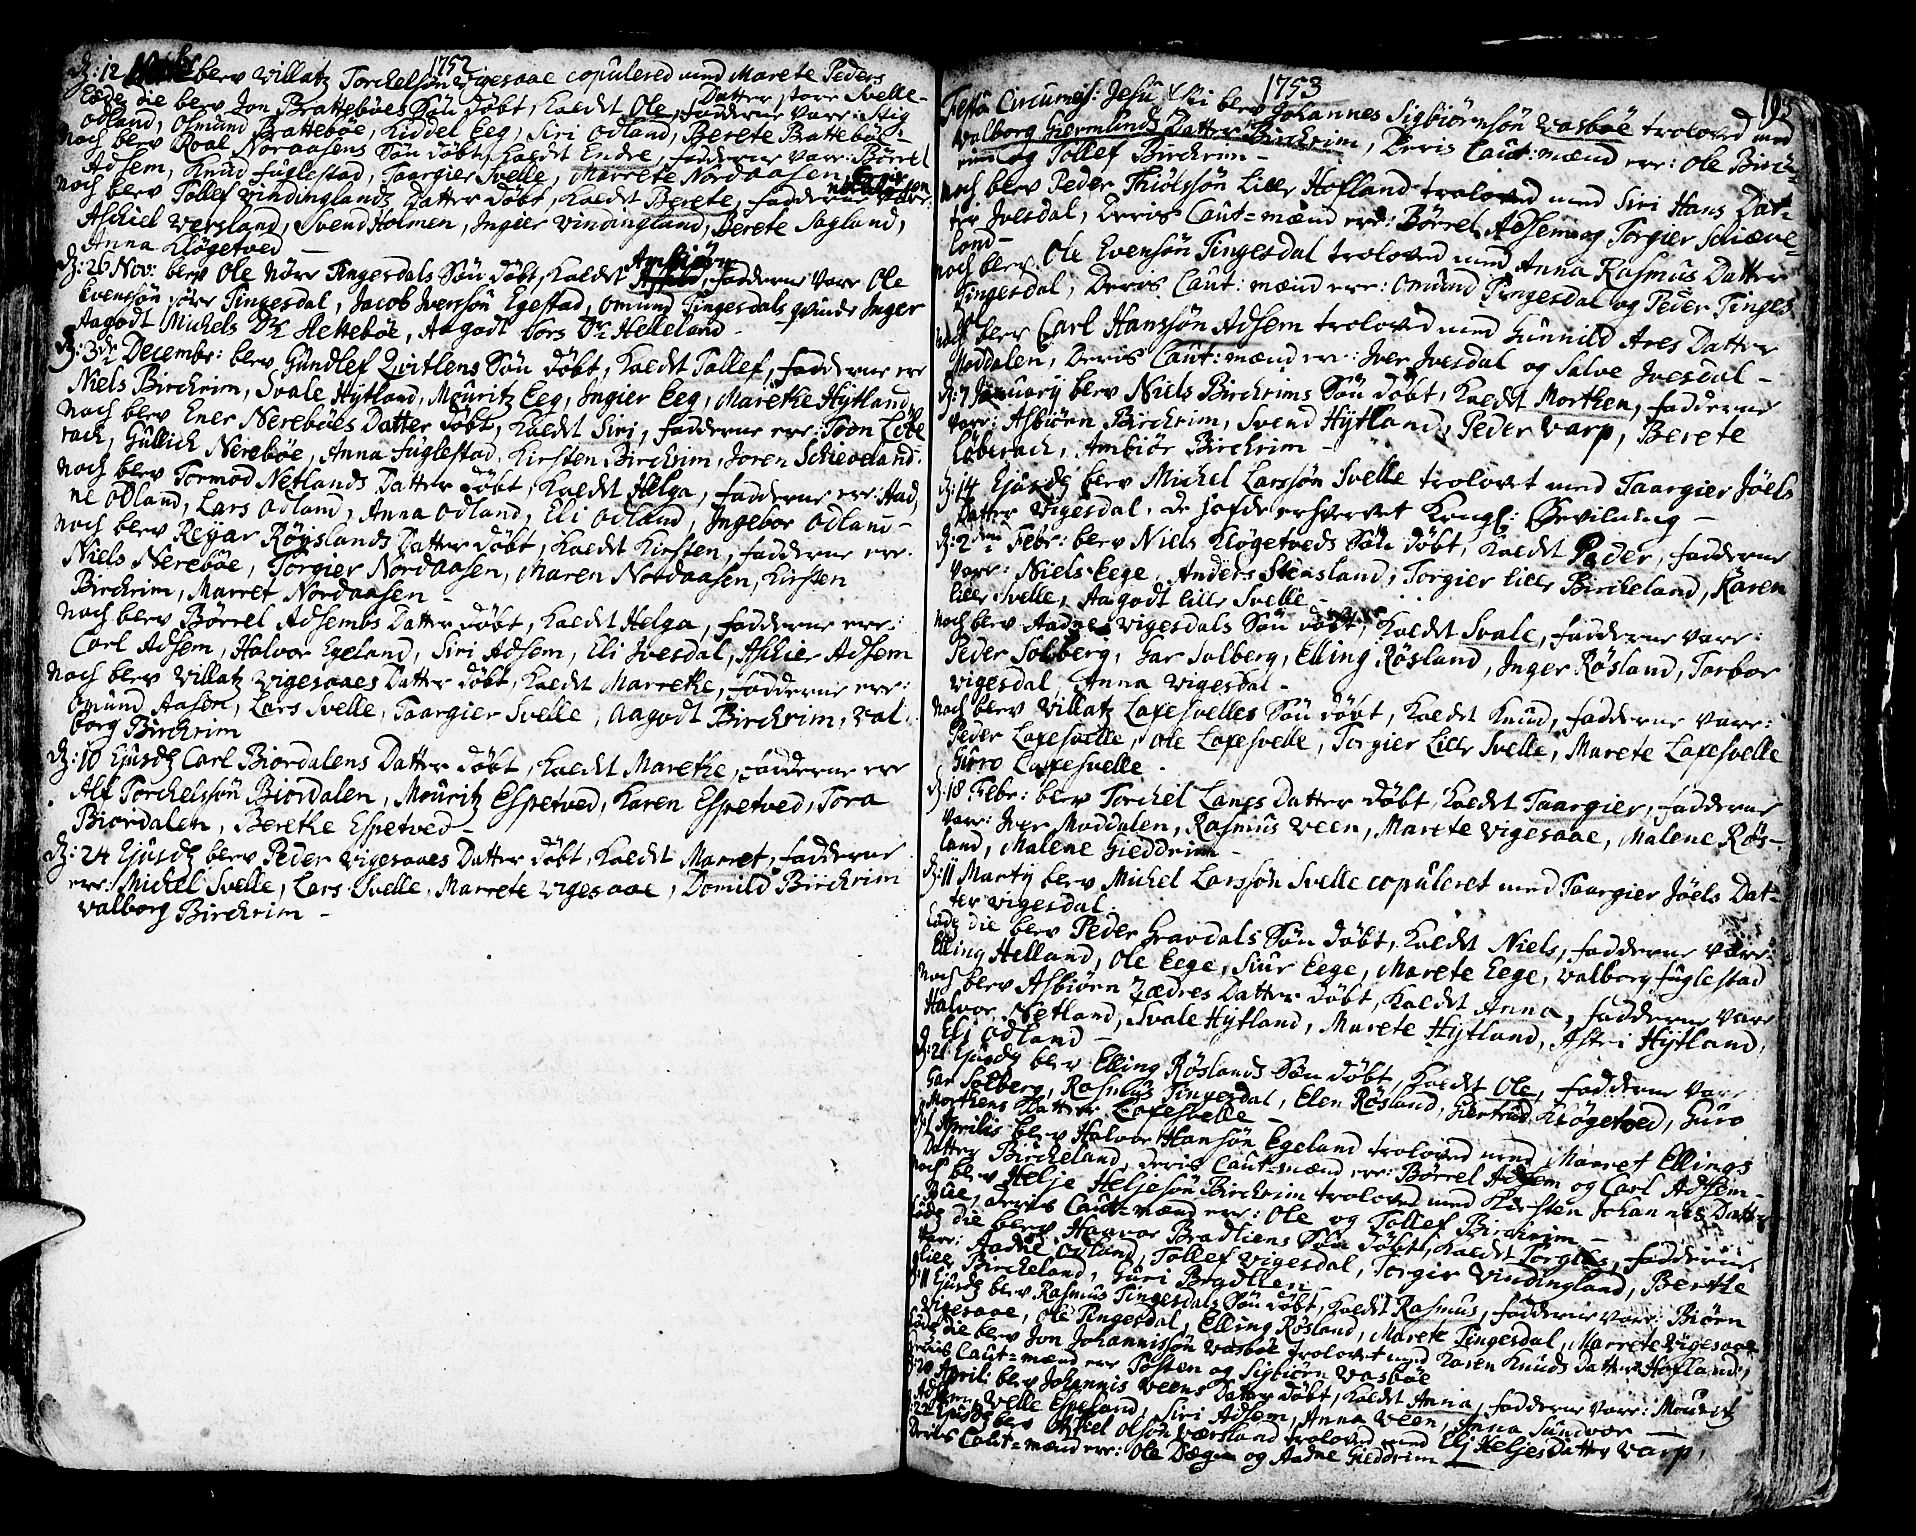 1752
d: 12 blev Villatz Torchelsøn Vigesaae copulered med Marete Peders
Datter store Svelle
Eode die blev Jon Brattebøes Søn døbt, kaldt Ole, fadderne vare: Stig
Odland, Osmund Brattebøe, Kiddel Eeg, Siri Odland, Berete Brattebøe
Noch blev Roal Nordaasens Søn døbt, kaldt Endre, fadderne vare: Børrel
Adsem, Knud Fuglestad, Taargier Svelle, Marrete Nordaasen,
Noch blev Tollef Vindinglands Datter døbt, kaldt Berete, fadderne vare:
Aschiel Versland, Svend Holmen, Ingier Vindingland, Berete Sagland,
Anna Kløgetved —
d: 26 Nov: blev Ole Nore Tingesdals Søn døbt, kaldt Ambiörn, fadderne vare Ole
Evensøn søre Tingesdal, Jacob Iversøn Egestad, Omund Tingesdals qvinde Inger
Aagodt Michels Dr Slettebøe, Aagodt Lors Dr Helleland
d: 3de Decembr: blev Gundlef Qvitlens Søn døbt, kaldt Tollef, fadderne ere
Niels Birchrim, Svale Hÿtland, Mouritz Eeg, Ingier Eeg, Marethe Hÿtland
Noch blev Ener Nerebøes Datter døbt, kaldt Siri, fadderne ere: Toon Løbe
rach, Gullich Nerebøe, Anna Fuglestad, Kirsten Birchrim, Joren Schieveland
Noch blev Tormod Netlands Datter døbt, kaldt Helga, fadderne ere: Aad
ne Odland, Lars Odland, Anna Odland, Eli Odland, Ingebor Odland
Noch blev Reÿar Røÿslands Datter døbt, kaldt Kirsten, fadderne ere:
Niels Nerebøe, Torgier Nordaasen, Maren Nordaasen, Kirsten
Birchrim, Marret Nordaasen —
Noch blev Børrel Adsembs Datter døbt, kaldt Helga, fadderne ere:
Carl Adsem, Halvor Egeland, Siri Adsem, Eli Ivesdal, Aschier Adsem
Noch blev Villatz Vigesaaes Datter døbt, kaldt Marrethe, fadderne ere:
Omund Aasen, Lars Svelle, Taargier Svelle, Aagodt Birchrim, Val
borg Birchrim
d: 10 Ejusdz Carl Biordalens Datter døbt, kaldt Marethe, fadderne ere
Alf Torchelssøn Biordalen, Mouritz Espetved, Karen Espetved, Tora
Biordalen, Berethe Espetved —
d: 24 Ejusdz blev Peder Vigesaaes Datter døbt, kaldt Marret, fadderne
ere: Michel Svelle, Lars Svelle, Marrete Vigesaae, Domild Birchrim
Valborg Birchrim —
1753
Festo Circumcis: Jesu Xsti blev Johannes Sigbiørnsøn Vasbøe troloved med
Valborg Giermunds Datter Birchrim, Deris Caut: mænd ere: Ole Birch
rim og Tollef Birchrim —
Noch blev Peder Thiølssøn Lille Hofland troloved med Siri Hans Dat
ter Ivesdal, Deris Caut=mænd ere: Børrel Adsem og Torgier Schiæve
land —
Noch blev Ole Evensøn Tingesdal troloved med Anna Rasmus Datter
Tingesdal, Deris Caut: mænd ere: Omund Tingesdal og Peder Tinges
dal
Noch blev Carl Hanssøn Adsem troloved med Gunnild Ares Datter
Moddalen, Deris Caut: mænd ere: Iver Ivesdal og Salve Ivesdal —
d: 7 January blev Niels Birchrims Søn døbt, kaldt Morthen, fadderne
vare: Asbiørn Birchrim, Svend Hÿtland, Peder Varp, Berete
Løberach, Ambiør Birchrim —
d: 14 Ejusdz blev Michel Larssøn Svelle trolovet med Taargier Jøels
Datter Vigesdal, de hafde erhvervet Kongl: Bevilning —
d: 2den Febr: blev Niels Kløgetveds Søn døbt, kaldt Peder, fadderne
vare: Niels Eege, Anders Stensland, Torgier lille Birckeland, Karen
lille Svelle, Aagodt lille Svelle —
Noch blev Aadne Vigesdals Søn døbt, kaldt Svale, fadderne vare:
Peder Solberg, Gar Solberg, Elling Røsland, Inger Røsland, Torbor
Vigesdal, Anna Vigesdal —
Noch blev Villatz Laxesvelles Søn døbt, kaldt Knud, fadderne vare:
Peder Laxesvelle, Ole Laxesvelle, Torgier Lille Svelle, Marete Laxesvelle
Guro Laxesvelle —
d: 18 Febr: blev Torchel Langs Datter døbt, kaldt Taargier, fadderne
vare: Iver Moddalen, Rasmus Veen, Marete Vigesaae, Malene Røs-
land, Malene Gieddrim —
d: 11 Martÿ blev Michel Larssøn Svelle copuleret med Taargier Jøels Dat
ter Vigesdal.
Eodz die blev Peder Gravdals Søn døbt, kaldt Niels, fadderne vare:
Elling Helland, Ole Eege, Siur Eege, Marete Eege, Valborg Fuglestad
Noch blev Asbiørn Tædres Datter døbt, kaldt Anna, fadderne vare
Halvor Netland, Svale Hÿtland, Marete Hÿtland, Astri Hÿtland,
Eli Odland —
d: 26 Ejusdz blev Elling Røslands Søn døbt, kaldt Ole, fadderne vare
Gar Solberg, Rasmus Tingesdal, Elen Røsland, Giertrud Kløgetved, Guro
Morthens Datter Laxesvelle —
d: 1 Aprilis blev Halvor Hansøn Egeland troloved med Marret Ellings
Datter Birckeland, deris Caut=mænd ere: Børrel Adsem og Carl Adsem —
Noch blev Helje Heljesøn Birchrim troloved med Kirsten Johannes Datter
Bue, deris Caut=mænd ere: Ole og Tollef Birchrim —
Eodz die blev Haavar Bradliens Søn døbt, kaldt Torgies, fadderne
vare: Aadne Odland, Tollef Vigesdal, Torgier Vindingland, Berthe
lille Birckeland, Guri Bradlien —
d: 11 Ejusdz blev Rasmus Tingesdals Søn døbt, kaldt Rasmus, fadderne vare: Biørn
Vigesaae, Ole Tingesdal, Elling Røsland, Marete Tingesdal, Marrete Vigesaae
Eodz die blev Jon Johannissøn Vasbøe trolovet med Karen Knuds Datter Hofland,
deris Caut=mænd ere Tosten og Sigbiørn Vasbøe
d: 20 April: blev Johannis Veens Datter døbt, kaldt Anna, fadderne vare: Mouritz
Adsem, Velle Espeland, Siri Adsem, Anna Veen, Anna Sundvor —
d: 22 Ejusdz blev Aschiel Olsøn Værsland troloved med Elj Heljes Datter Varp,
Deris Caut=mænd ere: Ole Dægen og Aadne Gieddrim —